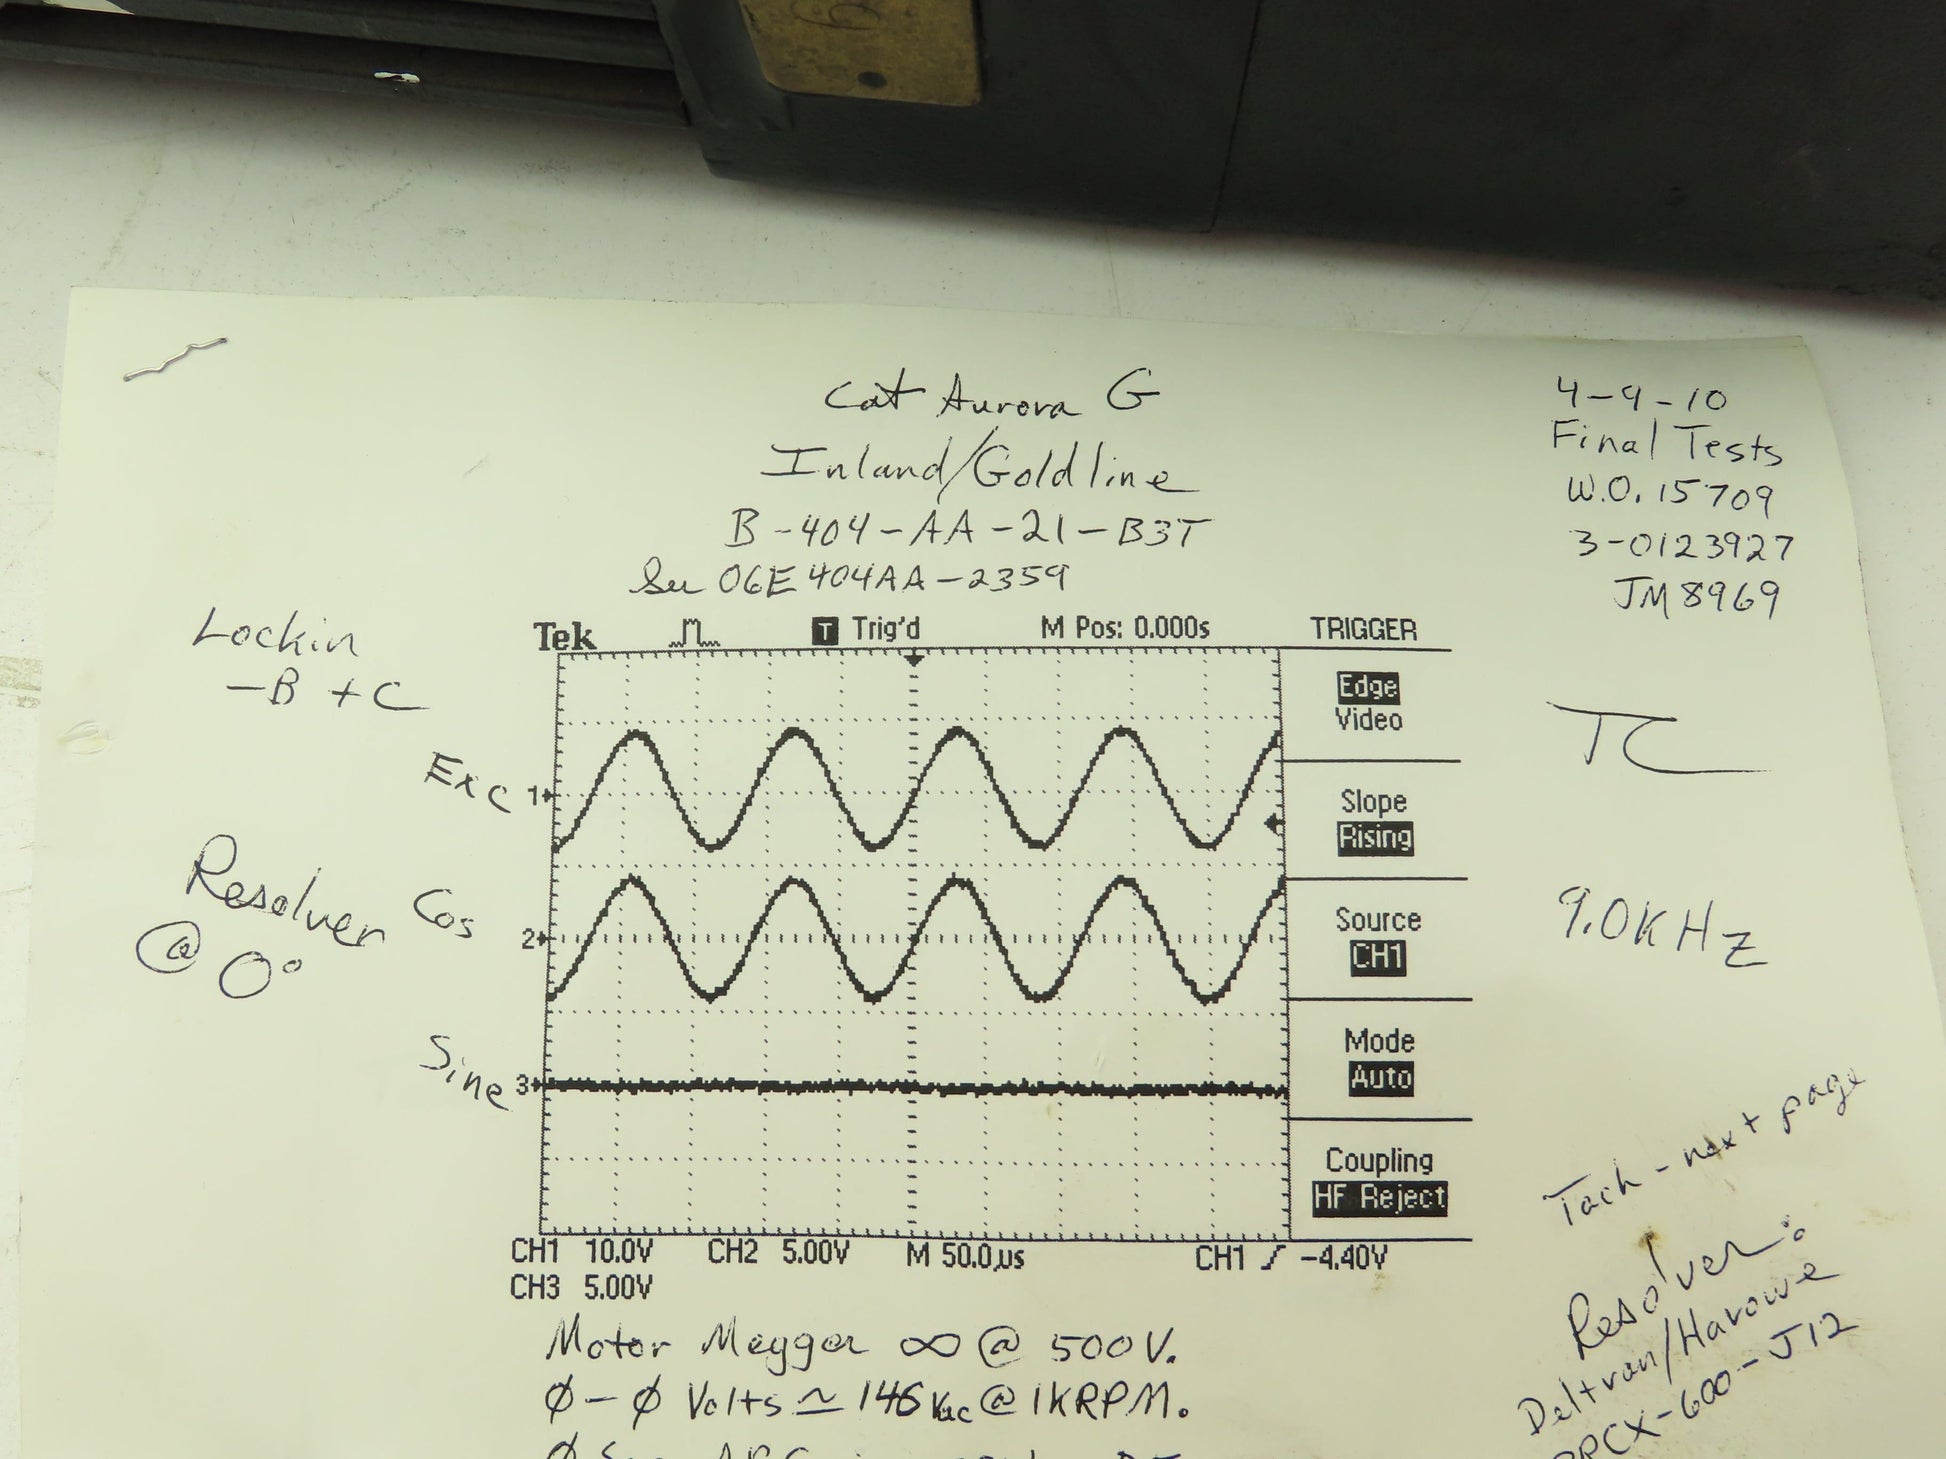 Cat Aurora G
Inland/Goldline
B-404-AA-21-B3T
Ser 06E404AA-2359
4-9-10
Final Tests
W.O. 15709
3-0123927
JM8969
Lockin
-B +C
Tek T Trig'd M Pos: 0.000s TRIGGER
Edge
Video
Exc 1
Slope
Rising
Resolver
@ 0°
Cos 2
Source
CH1
9.0KHz
Sine 3
Mode
Auto
Coupling
HF Reject
CH1 10.0V CH2 5.00V M 50.0µs CH1 -4.40V
CH3 5.00V
Tach - next page
Resolver:
Deltran/Harowe
-600-J12
Motor Megger ∞ @ 500V.
Ø-Ø Volts ≃ 146 Vac @ 1KRPM.